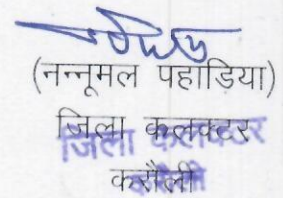 (नन्नूमल पहाडिया)
जिला कलक्टर
जिला कलक्टर
करौली